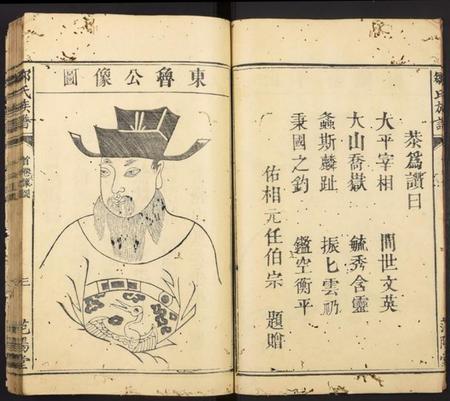 恭爲讚曰
太平宰相 間世文英
大山喬嶽 毓秀含靈
螽斯麟趾 振匕雲礽
秉國之鈞 鑑空衡平
佑相元任伯宗 題贈
東魯公像圖
鄒氏族譜
三
范陽堂